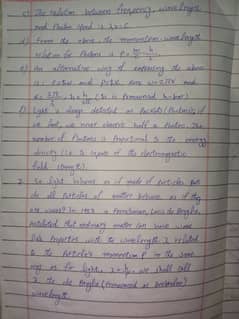 c) The relation between frequency, wavelength
and Photon speed is λν=C.
d) From the above, the momentum, wavelength
relation for Photons is P = =
e) An alternative way of expressing the above
is E=ħω and P=ħk, here ω=2πν and
k= 2π/λ, ħ= h/2π (ħ is pronounced h-bar)
f) Light is always detected as Packets (Photons); if
we look we never observe half a Photon. The
number of Photons is Proportional to the energy
density (i.e to square of the electromagnetic
field strength).
2. So light behaves as if made of Particles. But
do all Particles of matter behave as if they
are waves? In 1923 a Frenchman, Louis de Broglie,
Postulated that ordinary matter can have wave
like Properties with the wavelength λ related
to the Particle's momentum P in the same
way as for light, λ=h/P. We shall call
λ the de Broglie (Pronounced as )
wavelength.